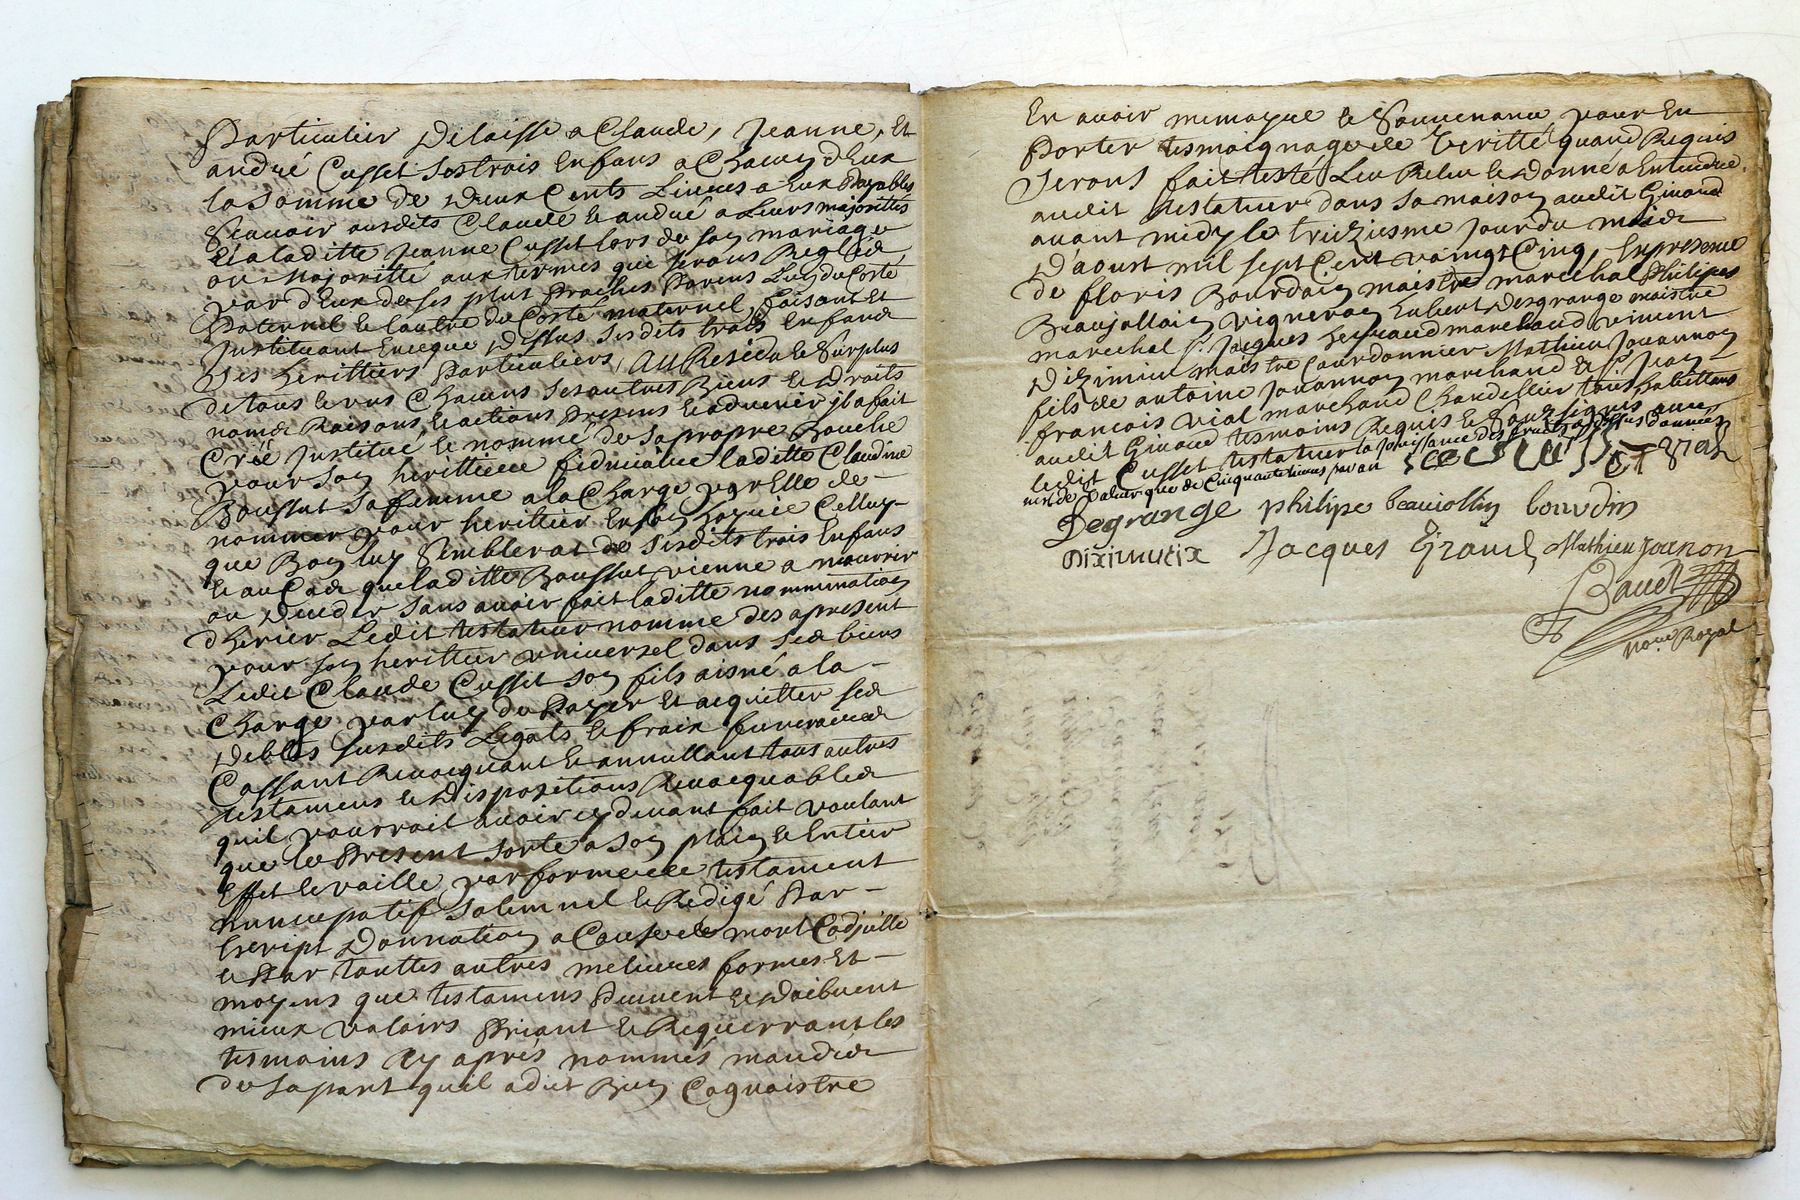 Particulier Delaisse a Claude, Jeanne, Et
andré Cusset ses trois Enfans a Chacun d'Eux
la somme de Deux Cents Livres a Eux Payables
Scavoir ausdits Claude et andré a Leurs majorittés
Et a laditte Jeanne Cusset lors de son mariage
ou Majoritté aux termes qui serons Reglés
par d'Eux de ses plus proches Parens L'un du Costé
Paternel et l'autre du Costé maternel faisant Et
Instituant Encequé Dessus sesdits trois Enfans
ses herittiers Particuliers, Au Residu et surplus
de tous et uns Chacuns ses autres Biens et Droits
noms Raisons et actions Presens et advenir il a fait
Créé Institué et nommé de sa propre Bouche
pour son herittiere fiduciaire laditte Claudine
Boussut sa femme a la Charge par Elle de
nommer pour herittier En son hoyrie Celluy
que Bon luy Semblerat de sesdits trois Enfans
et au Cas que laditte Boussut vienne a mourrir
ou Deceder sans avoir fait laditte nommination
d'herier Ledit testateur nomme des apresent
pour son herittier universel dans ses biens
Ledit Claude Cusset son fils aisné a la
Charge par luy de Payer Et acquitter ses
Debtes susdits Legats et fraix funeraires
Cassant Revocquant et annullant tous autres
testamens et Dispozitions Revocquables
quil pourroit avoir cy devant fait voulant
que le Present sorte a son plain et Entier
Effet et vaille par forme de testament
nuncupatif solemnel et Redigé Par
Escript Donnation a Cause de mort Codicille
et Par touttes autres melieures formes Et
moyens que testamens Peuvent et Doibvent
mieux valoirs Priant et Requerrant les
tesmoins cy aprés nommés mandés
de sa part quil a dit Bien Cognoistre
En avoir memoyre et Souvenance pour En
Porter tesmoignage de Veritté quand Requis
Serons fait testé Leu Releu et donné a Entendre
audit testateur dans sa maison audit Givaud
avant midy le treiziesme jour du mois
D'aoust mil sept Cent vaingt Cinq, En presence
de floris Bourdain maistre marechal Philipes
Beaujollain vigneron Enbert Desgrange maistre
marechal Sr. Jacques Heyraud marchand vincent
Diximieu maistre Courdonnier Mathieu Jouannon
fils de antoine Jouannon marchand et Sr Jean
francois Vial marchand Chandellier tous habittans
audit Givaud tesmoins Requis et Soussignés avec
ledit Cusset testateur la jouissance des fruits a dessus donnés
nest de valeur que de Cinquante livres par an
Degrange philipe beaujollin bourdin
Diximieux Jacques Eyraud Mathieu joanon
Baudt
nore. Royal